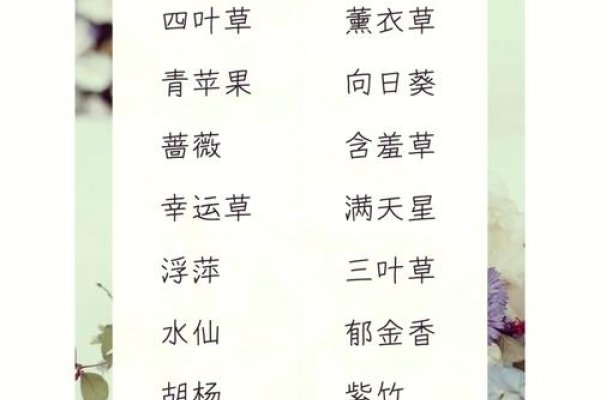 四叶草 薰衣草
青苹果 向日葵
蔷薇 含羞草
幸运草 满天星
浮萍 三叶草
水仙 郁金香
胡杨 紫竹